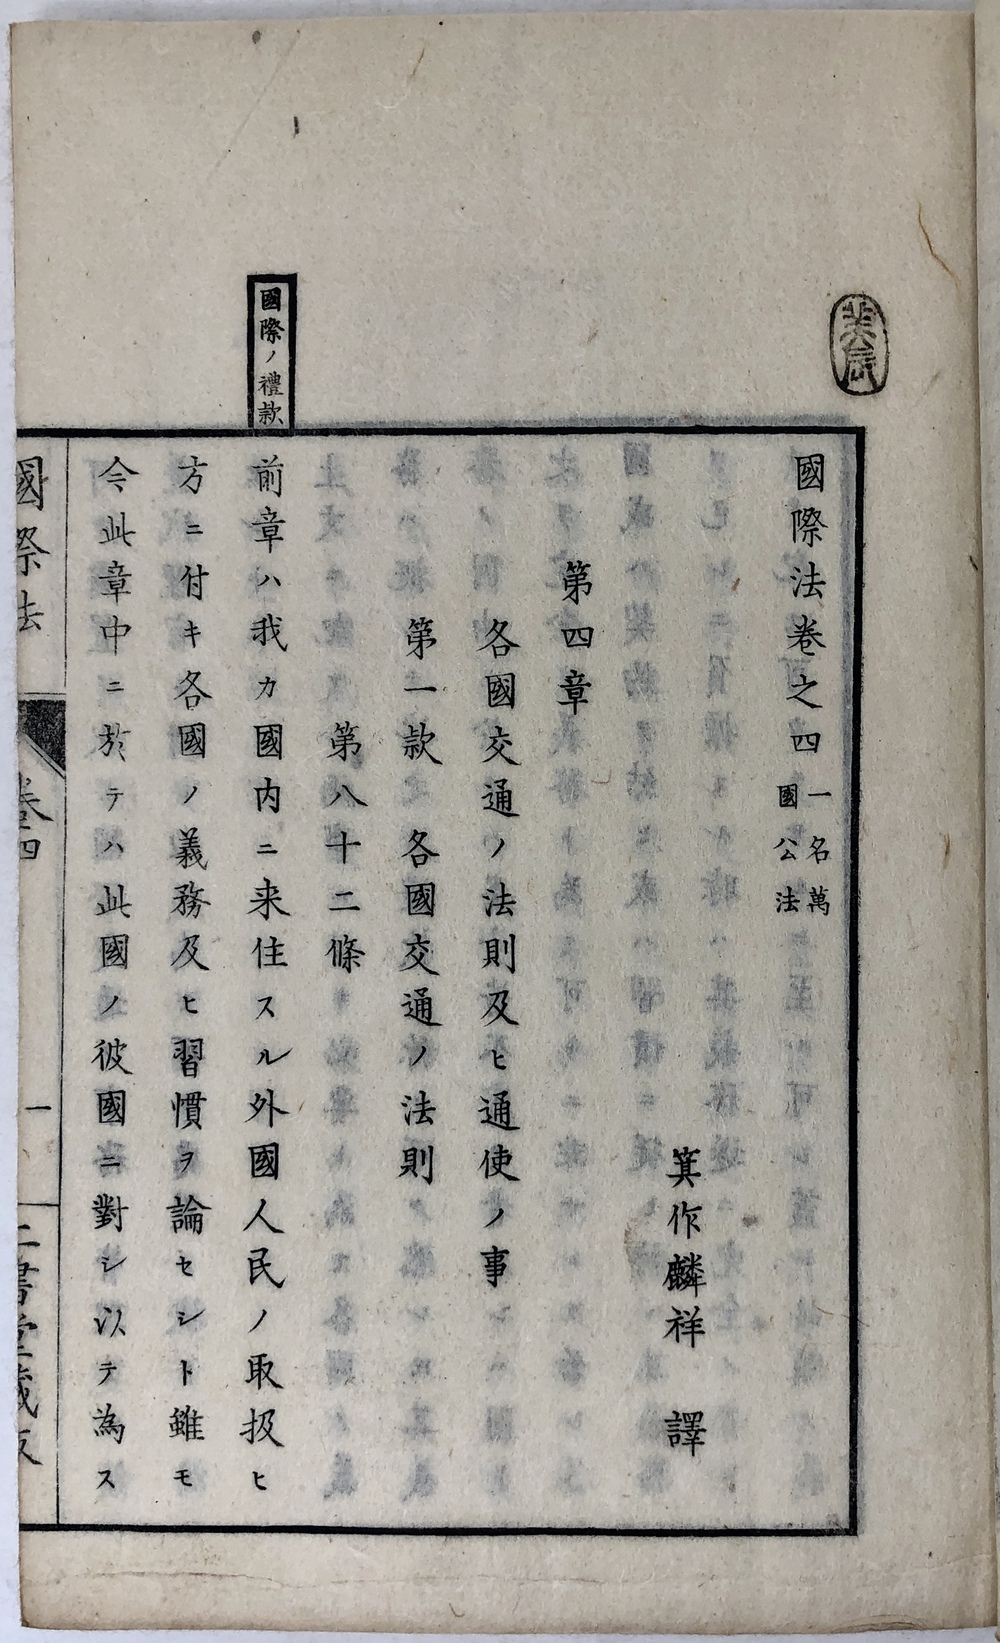 國際法卷之四 一名萬
國公法
箕作麟祥 譯
第四章
各國交通ノ法則及ヒ通使ノ事
第一款 各國交通ノ法則
第八十二條
國際ノ禮款
前章ハ我カ國内ニ来住スル外國人民ノ取扱ヒ
方ニ付キ各國ノ義務及ヒ習慣ヲ論セシト雖モ
今此章中ニ於テハ此國ノ彼國ニ對シ以テ為ス
國際法 卷四 一